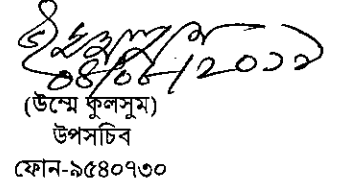 (উম্মে কুলসুম)
উপসচিব
ফোন-৯৫৪০৭৩০